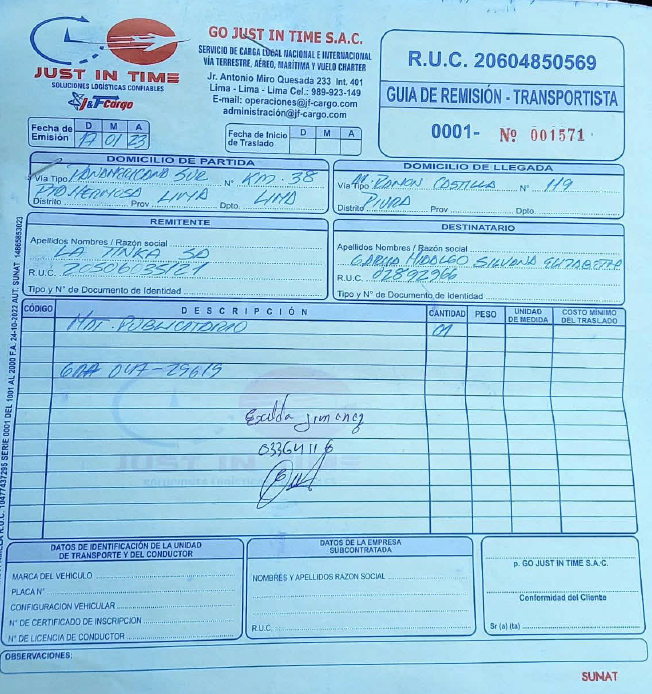 JUST IN TIME
SOLUCIONES LOGÍSTICAS CONFIABLES
J&F Cargo
GO JUST IN TIME S.A.C.
SERVICIO DE CARGA LOCAL NACIONAL E INTERNACIONAL
VÍA TERRESTRE, AÉREO, MARÍTIMA Y VUELO CHARTER
Jr. Antonio Miro Quesada 233 Int. 401
Lima - Lima - Lima Cel.: 989-923-149
E-mail: operaciones@jf-cargo.com
administración@jf-cargo.com
R.U.C. 20604850569
GUIA DE REMISIÓN - TRANSPORTISTA
0001- Nº 001571
Fecha de Emisión D M A
17 01 23
Fecha de Inicio de Traslado D M A
DOMICILIO DE PARTIDA
Vía Tipo Panamericana Sur N° KM. 38
Distrito Pto Hermosa Prov LIMA Dpto. LIMA
DOMICILIO DE LLEGADA
Vía Tipo Ramon Castilla N° 119
Distrito Piura Prov Dpto.
REMITENTE
Apellidos Nombres / Razón social
LA TINKA SA
R.U.C. 20506035121
Tipo y N° de Documento de Identidad
DESTINATARIO
Apellidos Nombres / Razón social
Garcia Hidalgo Silvana Elizabeth
R.U.C. 02892966
Tipo y N° de Documento de Identidad
CÓDIGO DESCRIPCIÓN CANTIDAD PESO UNIDAD DE MEDIDA COSTO MINIMO DEL TRASLADO
Mat. Publicitario 01
047-29615
Jimenez
03364116
JUST IN TIME
DATOS DE IDENTIFICACIÓN DE LA UNIDAD
DE TRANSPORTE Y DEL CONDUCTOR
MARCA DEL VEHICULO
PLACA N°
CONFIGURACION VEHICULAR
N° DE CERTIFICADO DE INSCRIPCION
N° DE LICENCIA DE CONDUCTOR
DATOS DE LA EMPRESA
SUBCONTRATADA
NOMBRES Y APELLIDOS RAZON SOCIAL
R.U.C.
p. GO JUST IN TIME S.A.C.
Conformidad del Cliente
Sr (a) (ta)
OBSERVACIONES:
SUNAT
R.U.C. 10477437295 SERIE 0001 DEL 1001 AL 2000 F.A. 24-10-2022 AUT. SUNAT 14865853023